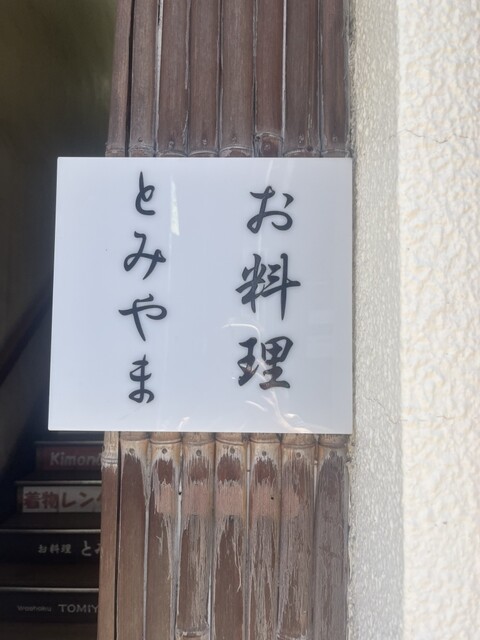 お料理
とみやま
Kimon
着物レン
お料理 と
TOMIY